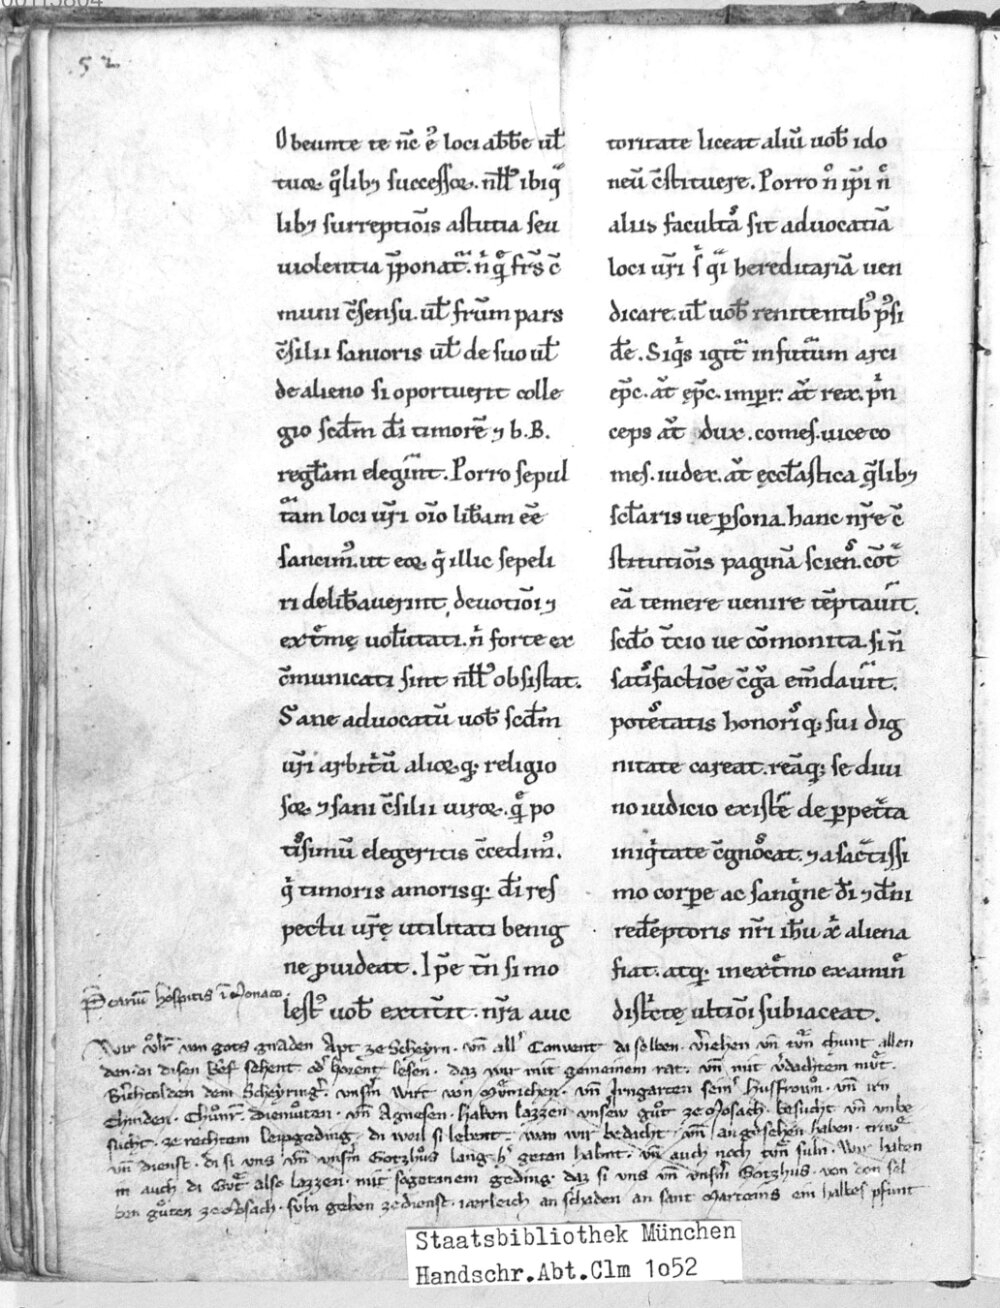 52
Obeunte te nc̄ ē loci abb̄e ul̄
tuoꝝ q̊libꝫ successoꝝ. nll̄s ibi q̄
libꝫ surreptiōis astutia seu
uiolentia p̄ponat̄. ń q̄ frs̄ c̄
muni c̄sensu. ul̄ frūm pars
c̄silii sanioris ul̄ de suo ul̄
de alieno si oportuerit colle
gio scd̄m dī timorē ⁊ b. B.
regl̄am elegint̄. Porro sepul
tām loci ur̄i oīo lib̄am eē
sancim᷒. ut eoꝝ q̇ illic sepeli
ri delib̄auerint, deuotiōi ⁊
ext̄mę uolūtati. ń forte ex
c̄municati sint nll̄s obsistat.
Sane aduocatū uob̄ scd̄m
ur̄i arbitr̄ū alioꝝqꝫ religio
soꝝ ⁊ sani c̄silii uiroꝝ. q̄ po
tīsimū elegeritis c̄cedim᷒.
q̇ timoris amorisqꝫ dī res
pectu ur̄ę utilitati benig
ne ꝓuideat. Ip̄e tn̄ si mo
lest᷒ uob̄ extit̄it. nr̄a auc
toritate liceat aliū uob̄ ido
neū c̄stituere. Porro ń ip̄i ń
aliis facultā sit aduocatiā
loci ur̄i s̄ q̄i hereditariā uen
dicare. ul̄ uob̄ renitentib᷒ p̄si
d̄e. Siq̇s igit̄ in futūm arci
ep̄c. at̄ ep̄c. imp̄r. at̄ rex. ṗn
ceps at̄ dux. comes. uiceco
mes. iudex. at̄ ęccl̄astica q̄libꝫ
scl̄aris ue ꝑsona. hanc nr̄e c̄
stitutiōis paginā scien̄s. cōt̄
eā temere uenire tēptauit̄.
scd̄o t̄cio ue cōmonita. si ń
satīsfactiōe c̄gr̄a em̄dauit̄.
potētatis honoriqꝫ sui dig
nitate careat. reāqꝫ se diui
no iudicio existē de ꝑpet̄ta
iniq̇tate c̄gnoscat. ⁊ a sac̄tissi
mo corꝑe ac sangïne dī ⁊ dn̄i
red̄eptoris nr̄i ih̄u xī aliena
fiat. atqꝫ in ext̄mo examin̄
disc̄tę ultiōi subiaceat.
P̄carium hospitis ī Monaco.
Wir Vͦlr̄ von gots gnaden Apt ze Scheyrn. vn̄ all' Convent da selben. v'iehen vn̄ tuͤn chunt allen
den. di disen brief sehent od' horent lesen. daz wir mit gemeinem rat. vn̄ mit v'dachtem muͤt.
Berhtolden dem Scheyring'. vnserm wirt von Mvͤnichen. vn̄ Irngarten sein' husfrown. vn̄ irn
chinden. Chuͦnr̄. Diemuͦten. vn̄ Agnesen. haben lazzen vnserw guͤt ze Mosach. besucht vn̄ vnbe
sucht. ze rechtem leipgeding. di weil si lebent. wan wir bedacht. vn̄ angesehen haben. triwͤ
vn̄ dienst. di si uns vn̄ unserm Gotzhus lang h' getan habent. vn̄ auch noch tuͤn suln. Wir haben
in auch di Guͤt also lazzen. mit sogetanem geding. daz si uns vn̄ unserm Gotzhus. von den sel
ben guͤten ze Mosach. suln geben ze dienst. iaerleich an schaden an sant Marteins ein halbes pfunt
Staatsbibliothek München
Handschr.Abt.Clm 1o52